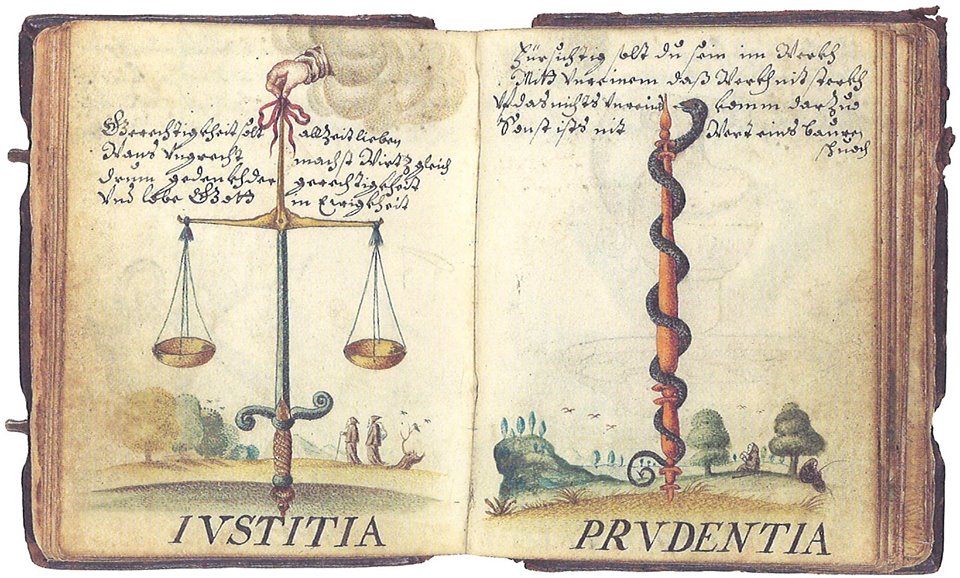 Gerechtigkheit solt all Zeit lieben
Vngrecht machst gleich
drum gedenckh der gerechtigkheit
Vnd lobe Gott in Ewigkheit
IVSTITIA
Fürsichtig solt du sein im Werckh
Mitt Vnreinem daß Werckh nit sterckh
das nichts Vnrein komm darZuo
Sonst ists nit Wert eins bauren
schuoch
PRVDENTIA